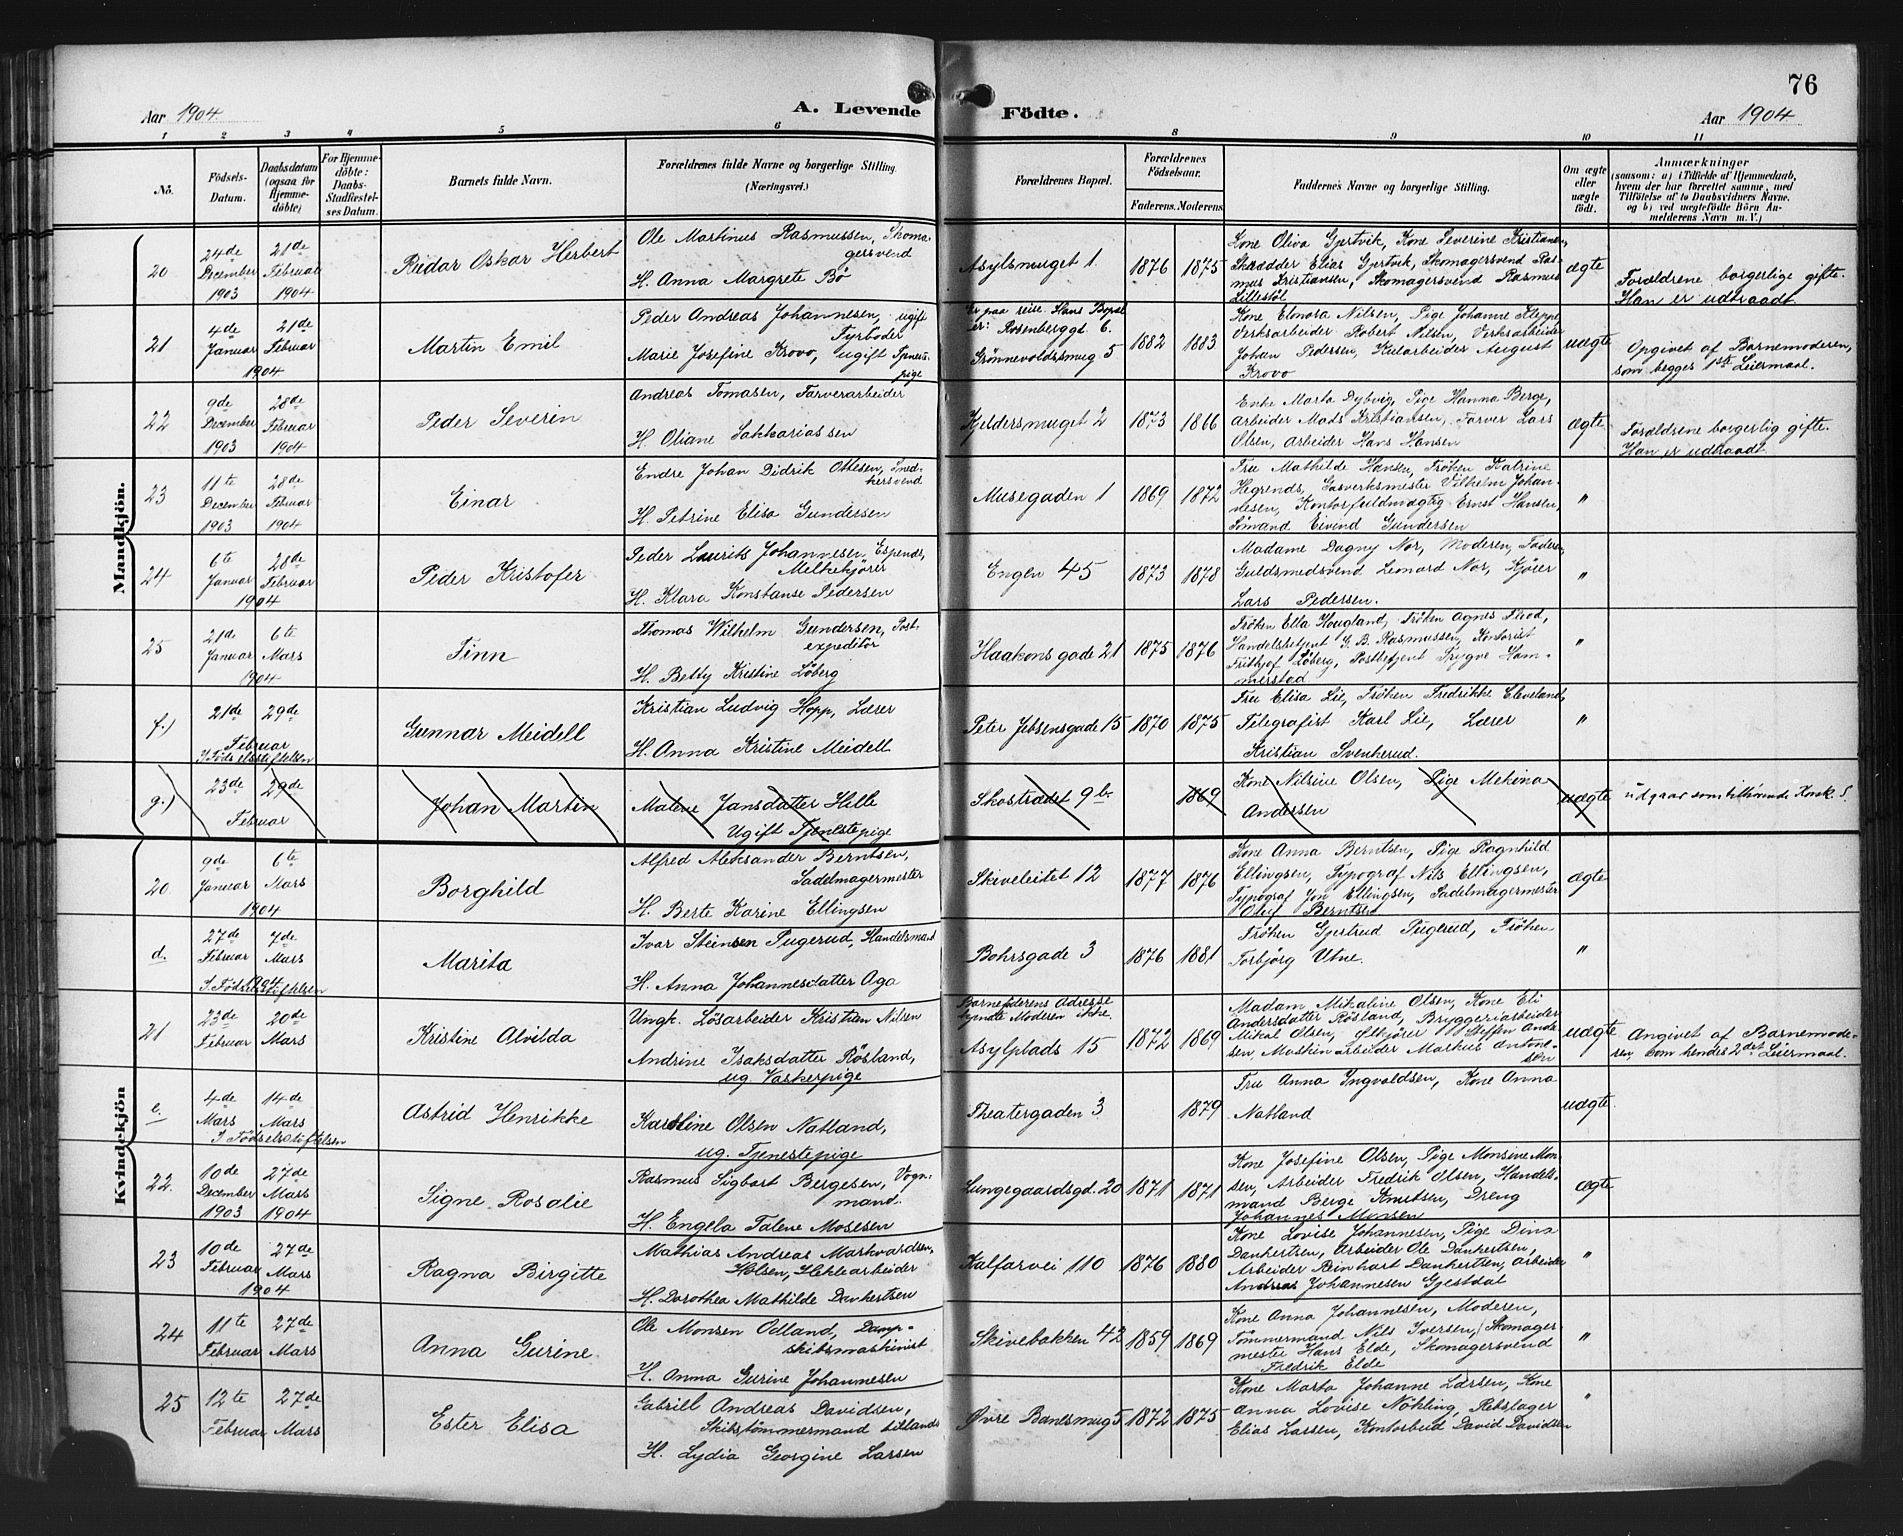 76
Aar 1904.
A. Levende Födte.
Aar 1904
1 2 3 4 5 6 8 9 10 11
No.
Födsels-Datum.
Daabsdatum (ogsaa for Hjemme-döbte)
For Hjemme-döbte: Daabs-Stadfæstel-ses Datum.
Barnets fulde Navn.
Forældrenes fulde Navne og borgerlige Stilling (Næringsvei.)
Forældrenes Bopæl.
Forældrenes Födselsaar.
Faderens. Moderens
Faddernes Navne og borgerlige Stilling.
Om ægte eller uægte födt.
Anmærkninger
(saasom: a) i Tilfælde af Hjemmedaab, hvem der har forrettet samme, med Tilföielse af to Daabsvidners Navne, og b) ved uægtefödte Börn An-melderens Navn m. V.)
Mandkjön.
20
24de December 1903
21de Februar 1904
Reidar Oskar Herbert
Ole Martinus Rasmussen, Skoma-
gersvend
H. Anna Margrete Bö
Asylsmuget 1
1876
1875
Kone Oliva Gjertvik, Kone Severine Kristiansen,
Skrædder Elias Gjertvik, Skomagersvend Ras-
mus Kristiansen, Skomagersvend Rasmus
Lillestöl
ægte
Forældrene borgerlige gifte.
Han er udtraadt.
21
4de Januar
21de Februar
1904
Martin Emil
Peder Andreas Johannesen, ugift
Fyrböder
Marie Josefine Krovo, ugift
pige
Er paa reise. Hans Bopæl
er: Rosenberggt 6.
Grönnevoldsmug 5
1882
1883
Kone Elonora Nilsen, Pige Johanne Kleppe
Verksarbeider Robert Nilsen, Verksarbeider
Johan Pedersen, Kularbeider August
Krovo
uægte
Opgivet af Barnemoderen,
som begges 1ste Leiermaal.
22
9de December 1903
28de Februar 1904
Peder Severin
Andreas Tomasen, Farverarbeider
H. Oliane Sakkariassen
Kjeldersmuget 2
1873
1866
Enke Marta Dybvig, Pige Hanna Berge,
Arbeider Mads Kristiansen, Farver Lars
Olsen, Arbeider Hans Hansen
ægte
Forældrene borgerlig gifte.
Han er udtraadt
23
11te December 1903
28de Februar 1904
Einar
Endre Johan Didrik Ottesen, Sned-
kersvend
H. Petrine Elisa Gundersen
Musegaden 1
1869
1872
Fru Mathilde Hansen, Fröken Katrine
Hegrends, Gasverksmester Vilhelm Johan-
nesen, Kontorfuldmægtig Ernst Hansen,
Sömand Eivind Gundersen
"
24
6te Januar
28de Februar
1904
Peder Kristofer
Peder Laurits Johannesen Espenes,
Melkekjörer
H. Klara Konstanse Pedersen
Engen 45
1873
1878
Madame Dagny Nor, Moderen, Faderen,
Guldsmedsvend Leonard Nor, Kjörer
Lars Pedersen.
"
25
21de Januar
6te Mars
1904
Finn
Thomas Wilhelm Gundersen, Post-
expeditör
H. Betty Kristine Löberg
Haakons gade 21
1875
1876
Fröken Ella Hougland, Fröken Agnes Flood,
Handelsbetjent G. B. Rasmussen, Kontorist
Fritjof Löberg, Postbetjent Trygve Ham-
merstad
"
f.)
21de 29de
Februar
I Födselsstiftelsen
Gunnar Meidell
Kristian Ludvig Hopp, Lærer
H. Anna Kristine Meidell
Peter Jebsensgade 15
1870
1875
Fru Elisa Lie, Fröken Fredrikke Cleveland,
Telegrafist Karl Lie, Lærer
Kristian Svenkerud.
"
g.)
23de 29de
Februar
Johan Martin
Malene Jansdatter Hille
Ugift Tjenestepige
Skostrædet 9 b.
1869
Kone Nilsine Olsen, Pige Mekina
Andersen
uægte
udgaar som tilhörende Korsk. S.
Kvindekjön
20
9de Januar
6te Mars
1904
Borghild
Alfred Aleksander Berntsen,
Sadelmagermester
H. Berte Karine Ellingsen
Skiveleitet 12
1877
1876
Kone Anna Berntsen, Pige Ragnhild
Ellingsen, Typograf Nils Ellingsen,
Typograf Jon Ellingsen, Sadelmagermester
Oluf Berntsen
ægte
d.
27de Februar
7de Mars
1904
I Födselsstiftelsen
Marita
Ivar Steinsen Pugerud, Handelsmand
H. Anna Johannesdatter Aga
Bohrsgade 3
1876
1881
Fröken Gjertrud Pugerud, Fröken
Torbjörg Utne.
"
21
23de Februar
20de Mars
Kristine Alvilda
Ungk. Lösarbeider Kristian Nilsen
Andrine Isaksdatter Rösland,
ug. Vaskerpige
Barnefaderens Adresse
kjendte Moderen ikke.
Asylplads 15
1872
1869
Madam Mikaline Olsen, Kone Eli
Andersdatter Rösland, Bryggeriarbeider
Mikal Olsen, Ölkjörer Steffen Ande-
sen, Maskinarbeider Markus Antone-
sen
uægte
Angivet af Barnemode-
ren som hendes 2det Leiermaal.
e.
4de Mars
14de Mars
I Födselsstiftelsen
Astrid Henrikke
Karoline Olsen Natland,
ug. Tjenestepige
Theatergaden 3
1879
Fru Anna Ingvaldsen, Kone Anna
Natland
uægte.
22.
10de December 1903
27de Mars 1904
Signe Rosalie
Rasmus Sigbart Bergesen, Vogn-
mand.
H. Engela Talene Mosesen
Lungegaardsgd. 20
1871
1871
Kone Josefine Olsen, Pige Monsine Mon-
sen, Arbeider Fredrik Olsen, Handels-
mand Berge Knutsen, Dreng
Johannes Monsen
ægte
23
10de Februar
27de Mars
1904
Ragna Birgitte
Mathias Andreas Markvardsen
Holsen, Heklearbeider
H. Dorothea Mathilde Dankertsen
Kalfarvei 110
1876
1880
Kone Lovise Johannesen, Pige Dina
Dankertsen, Arbeider Ole Dankertsen,
Arbeider Binhart Dankertsen, Arbeider
Andreas Johannesen Gjestdal
"
24
11te Februar
27de Mars
Anna Gurine
Ole Monsen Odland, Damp-
skibsmaskinist
H. Anna Gurine Johannesen
Skivebakken 42
1859
1869
Kone Anna Johannesen, Moderen,
Tömmermand Nils Iversen, Skomager
mester Hans Elde, Skomagersvend
Fredrik Elde
"
25
12te Februar
27de Mars
Ester Elisa
Gabriel Andreas Davidsen,
Skibstömmermand tillands
H. Lydia Georgine Larsen
Övre Banesmug 5
1872
1875
Kone Marta Johanne Larsen, Kone
Anna Lovise Nökling, Rebslager
Elias Larsen, Kontorbud David Davidsen
"